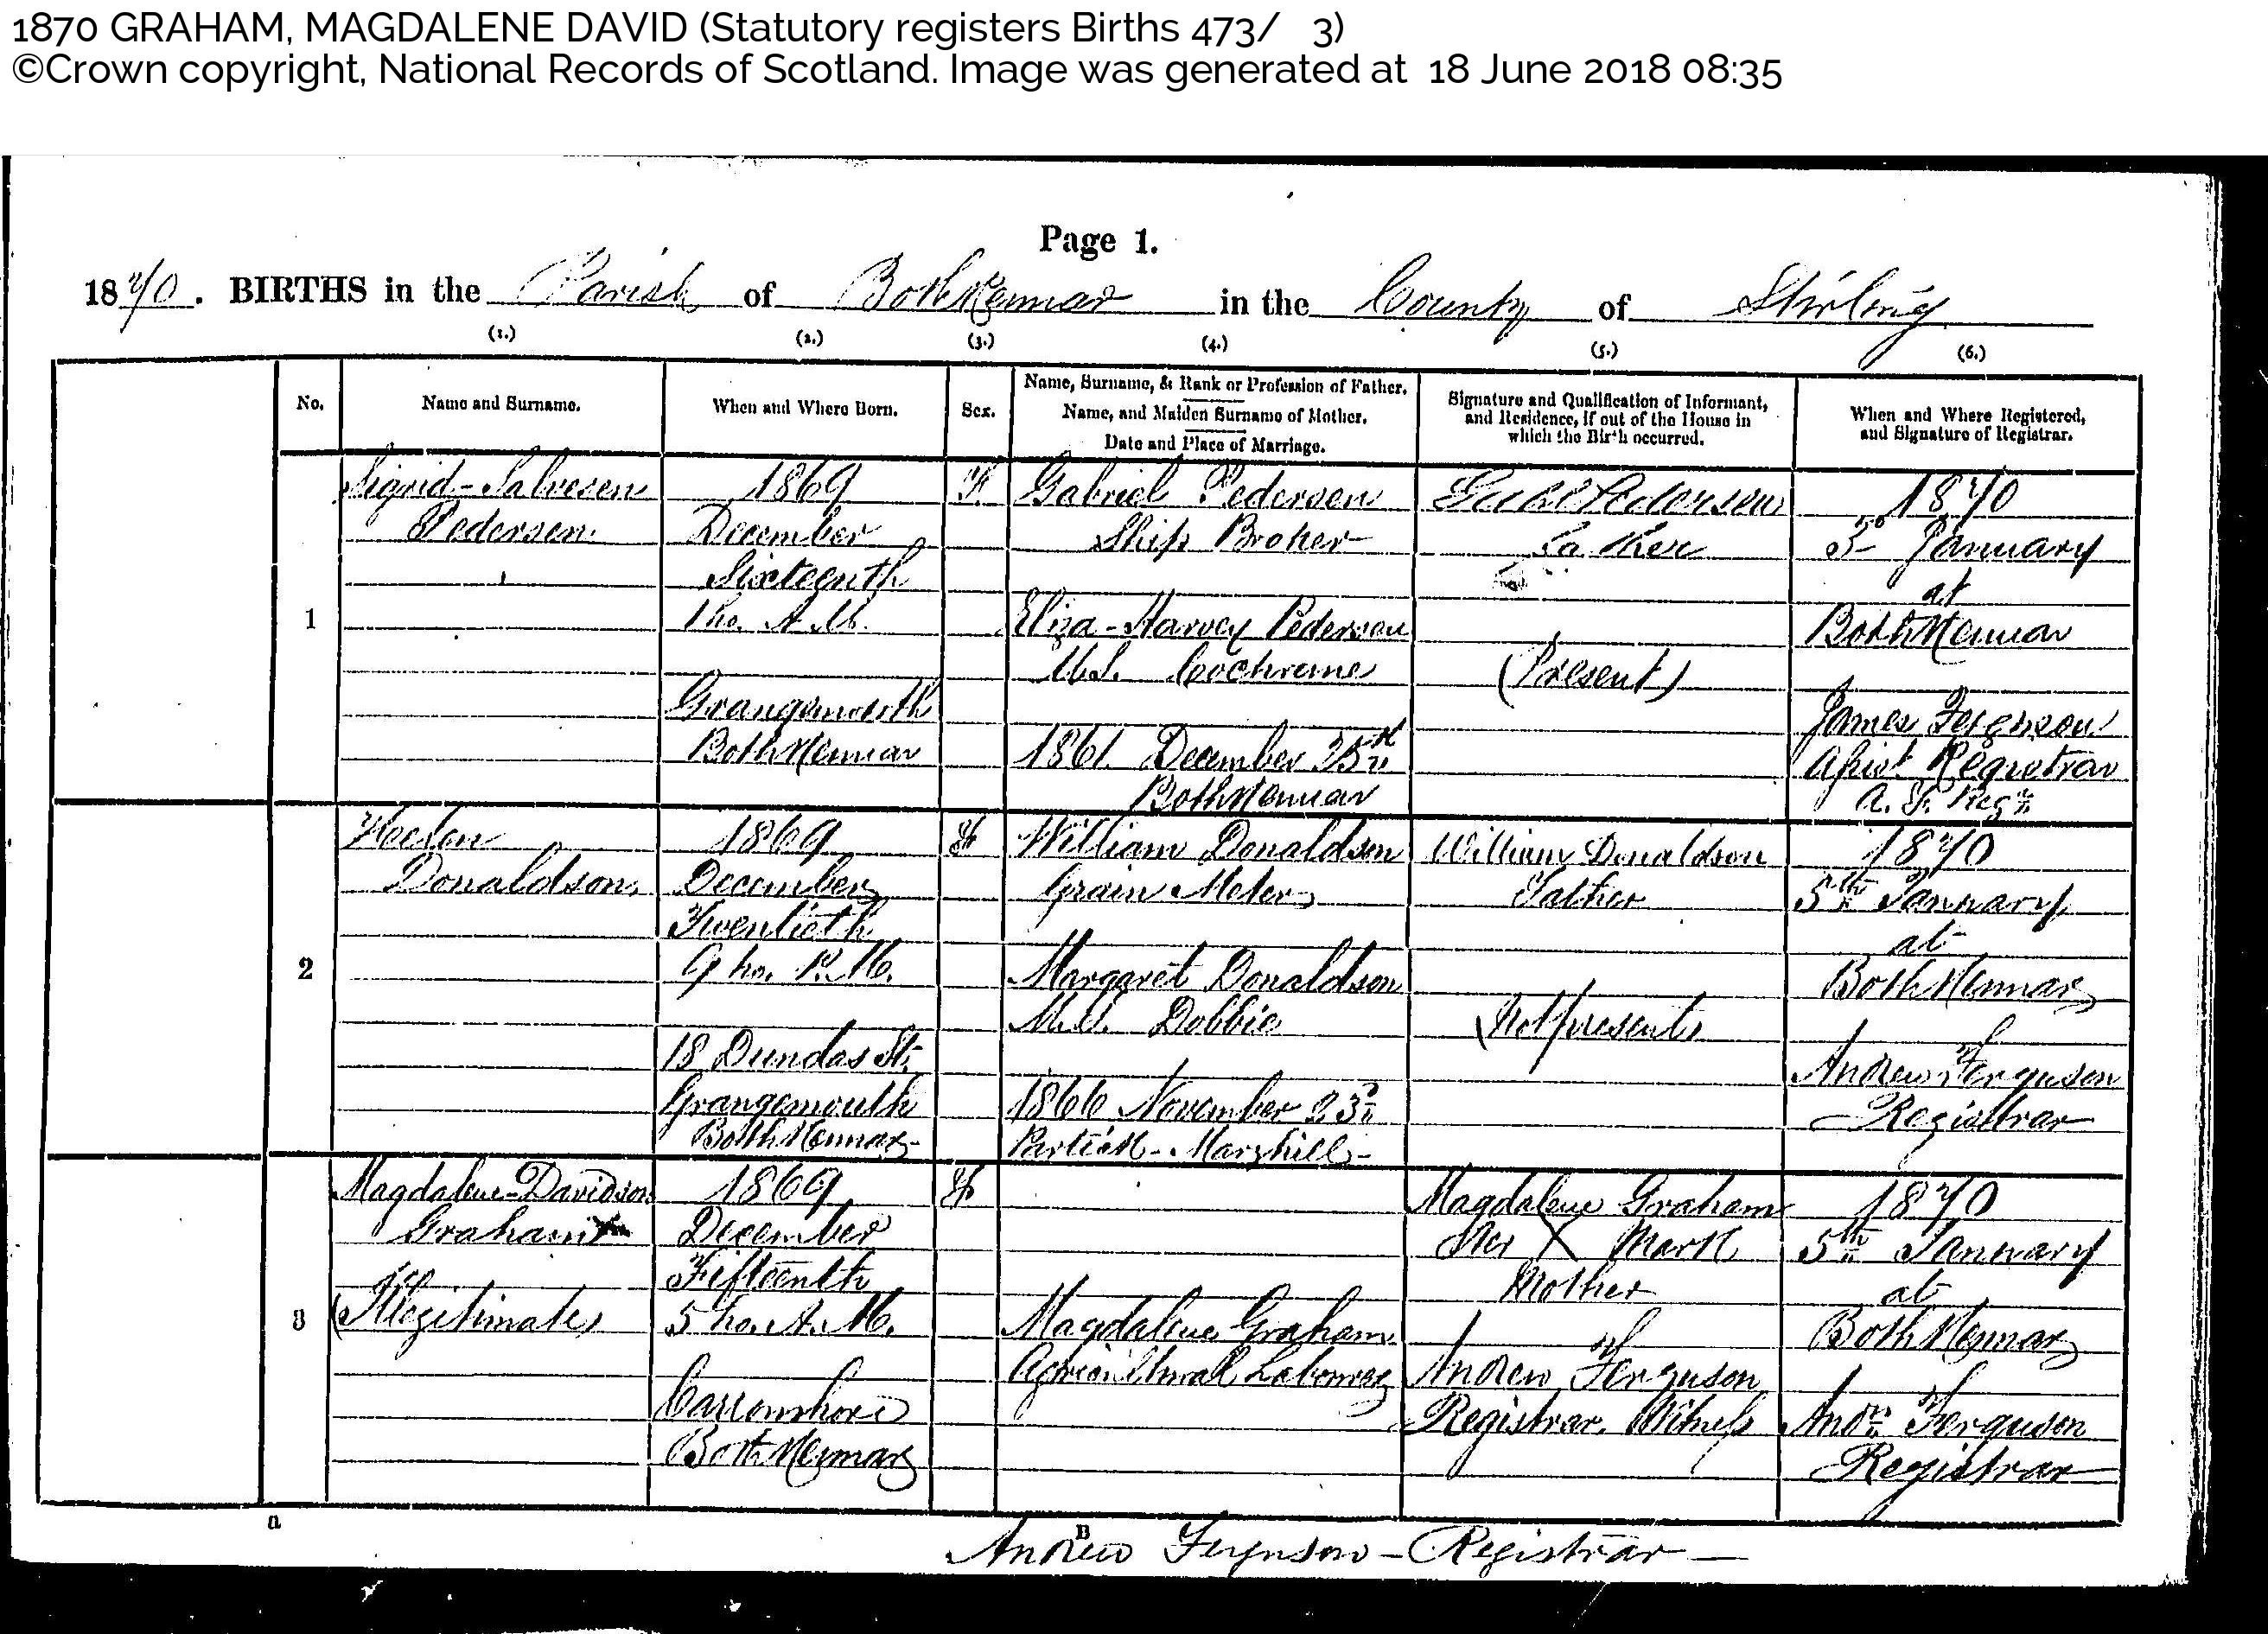 1870 GRAHAM, MAGDALENE DAVID (Statutory registers Births 473/ 3)
©Crown copyright, National Records of Scotland. Image was generated at 18 June 2018 08:35
Page 1.
1870. BIRTHS in the Parish of Bothkennar in the County of Stirling
(1.) (2.) (3.) (4.) (5.) (6.)
No.
Name and Surname.
When and Where Born.
Sex.
Name, Surname, & Rank or Profession of Father.
Name, and Maiden Surname of Mother.
Date and Place of Marriage.
Signature and Qualification of Informant,
and Residence, if out of the House in
which the Birth occurred.
When and Where Registered,
and Signature of Registrar.
1
Sigrid-Salvesen
Pedersen
1869
December
Sixteenth
1 ho. A.M.
Grangemouth
Bothkennar
F
Gabriel Pedersen
Ship Broker
Eliza-Harvey Pedersen
M.S. Cochrane
1861. December
Bothkennar
Pedersen
Father
(Present)
1870
January
at
Bothkennar
James Ferguson
Assist. Registrar
A. F. Regr.
2
Helen
Donaldson
1869
December
Twentieth
9 ho. P.M.
18 Dundas St.
Grangemouth
Bothkennar
F
William Donaldson
Grain Meter
Margaret Donaldson
M.S. Dobbie
1866 November 23d
Partick - Maryhill -
William Donaldson
Father
(Not present)
1870
5th January
at
Bothkennar
Andrew Ferguson
Registrar
3
Magdalene-Davidson
Graham
(Illegitimate)
1869
December
Fifteenth
5 ho. A.M.
Carronshore
Bothkennar
F
Magdalene Graham
Agricultural Labourer
Magdalene Graham
Her X Mark
Mother
Andrew Ferguson
Registrar. Witness
1870
5th January
at
Bothkennar
Andw. Ferguson
Registrar
a
B
Andrew Ferguson - Registrar -